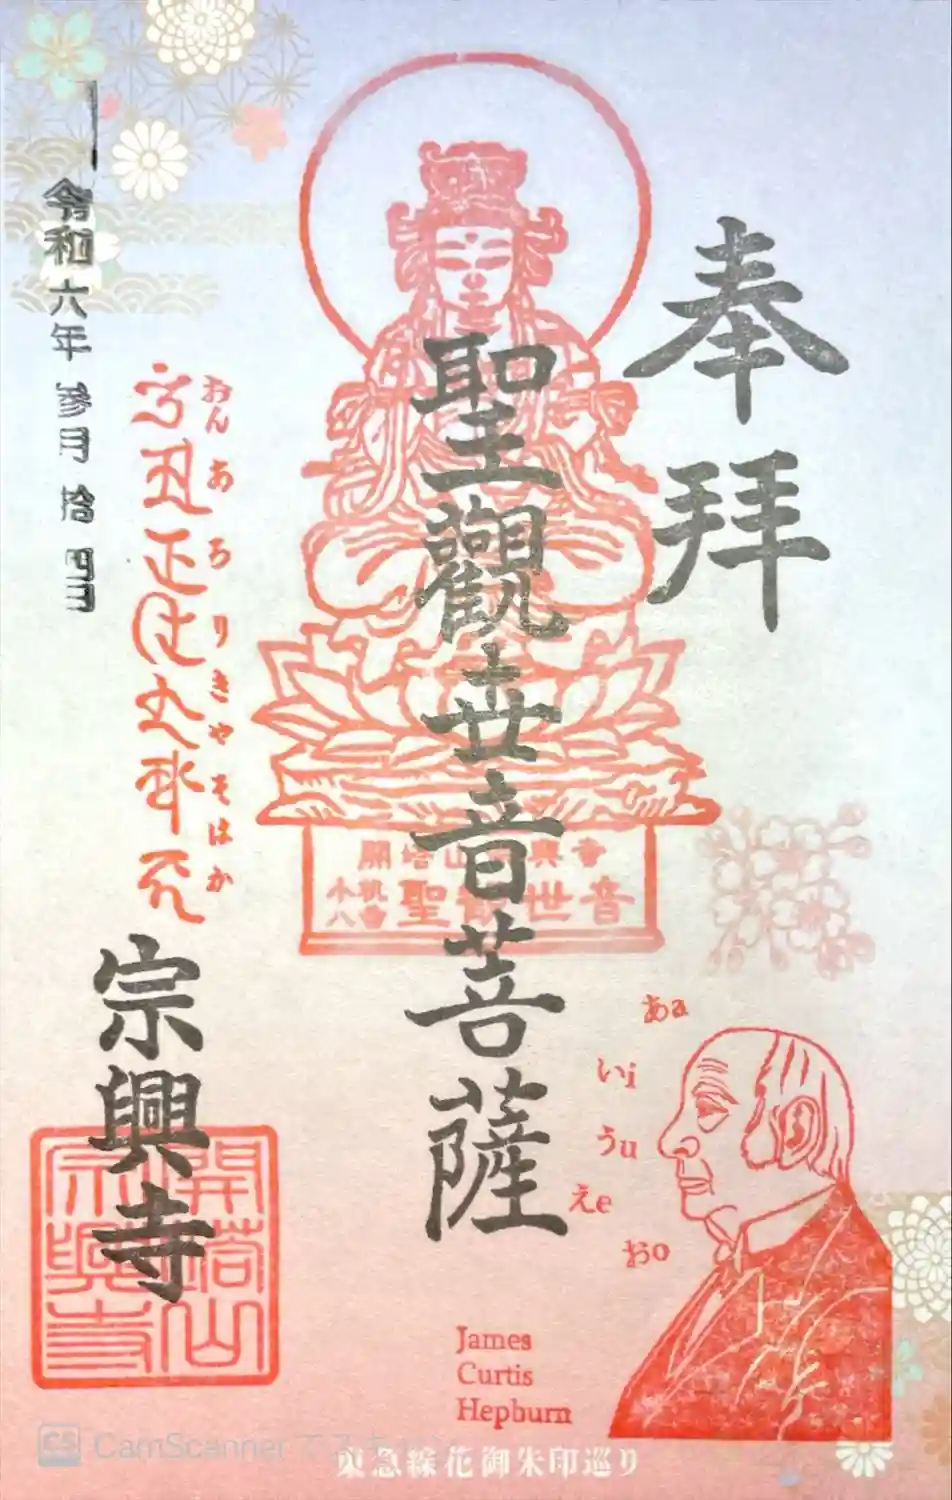 奉拝
聖觀世音菩薩
開塔山宗興寺
小机
八番
聖観世音
おん あ ろ りきや そはか
令和六年 参月 拾四日
宗興寺
開塔山
宗興寺
あa
いi
うu
えe
おo
James
Curtis
Hepburn
東急線花御朱印巡り
CS CamScanner でスキャン